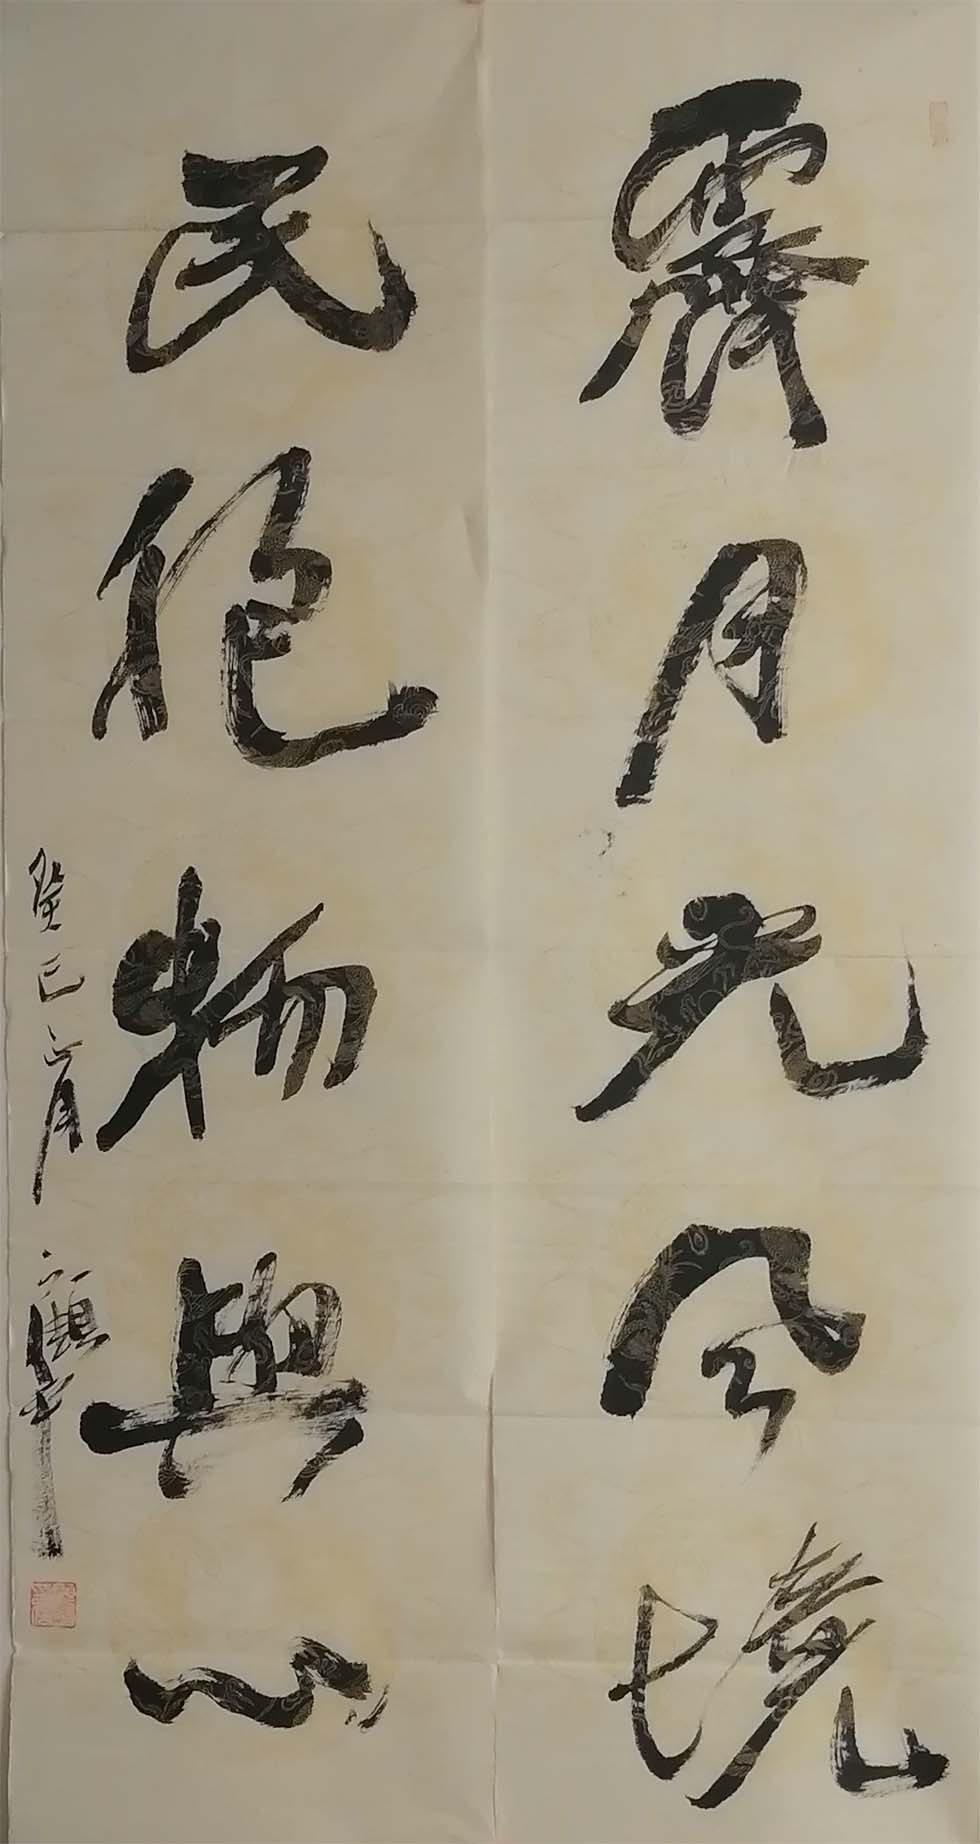 霽月光風境
民胞物與心
癸巳六月